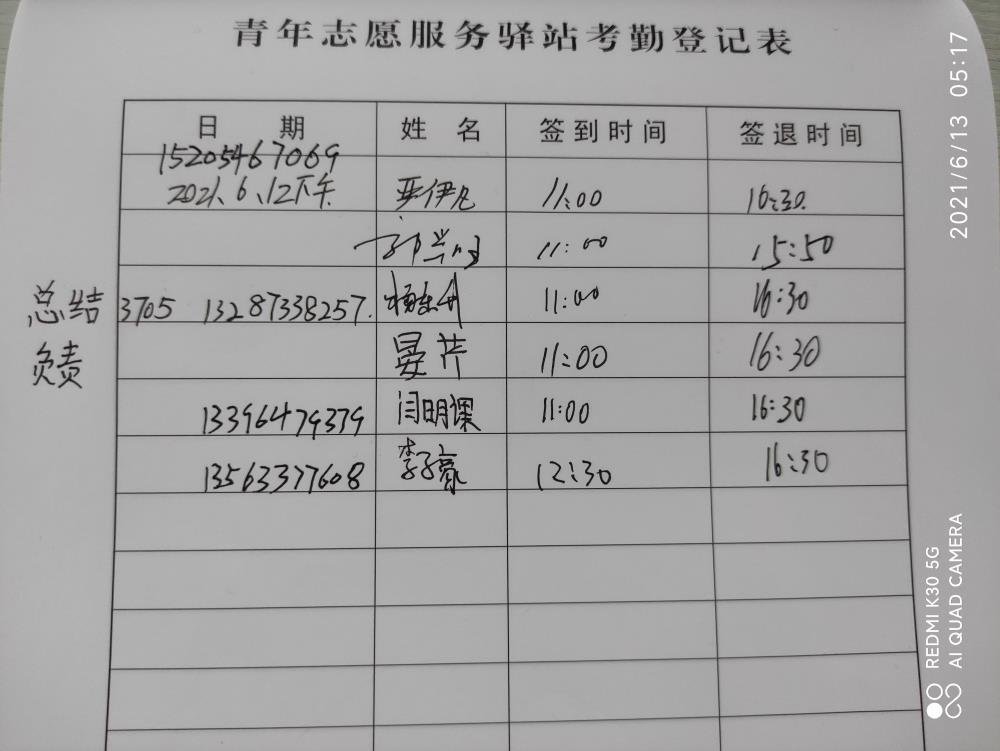 青年志愿服务驿站考勤登记表
日期 姓名 签到时间 签退时间
15205467069
2021.6.12下午 亚伊凡 11:00 16:30.
11:00 15:50
总结 3705 13287338257. 11:00 16:30
负责 晏芹 11:00 16:30
13396479379 闫明课 11:00 16:30
13563377608 李子豪 12:30 16:30
2021/6/13 05:17
REDMI K30 5G
AI QUAD CAMERA